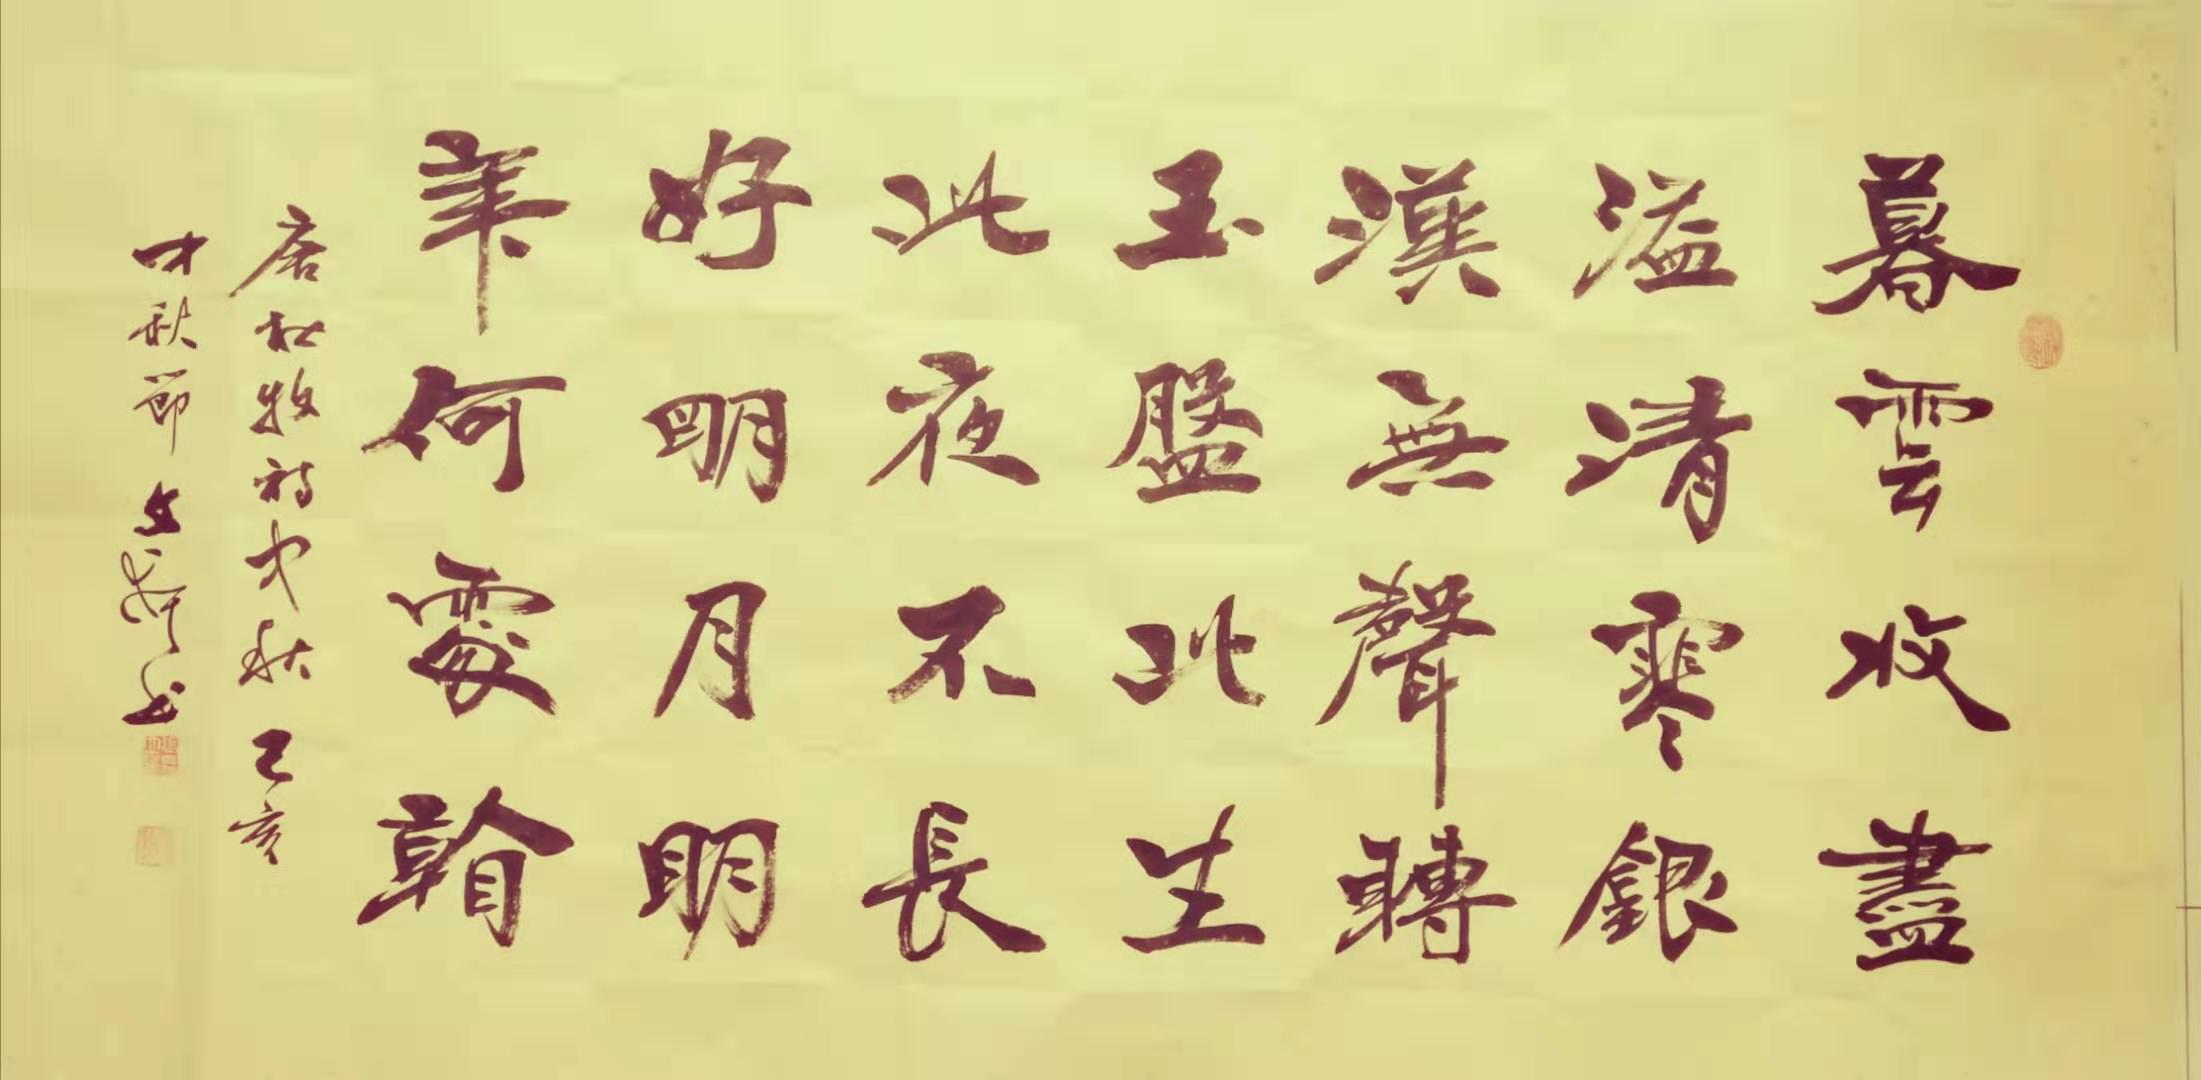 暮雲收盡
溢清寒銀
漢無聲轉
玉盤此生
此夜不長
好明月明
年何處看
唐杜牧詩中秋 己亥
中秋節 文 书